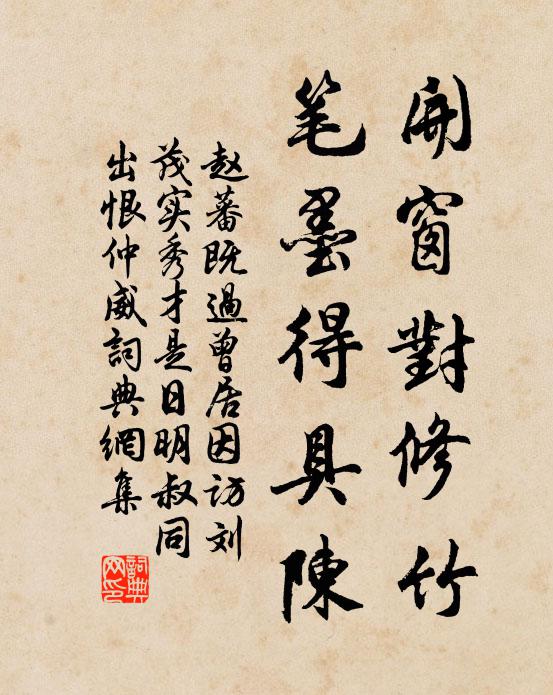 開窗對修竹
笔墨得具陳
赵蕃既過曾居因访刘
茂实秀才是日明叔同
出恨仲威詞典網集
詞典网印